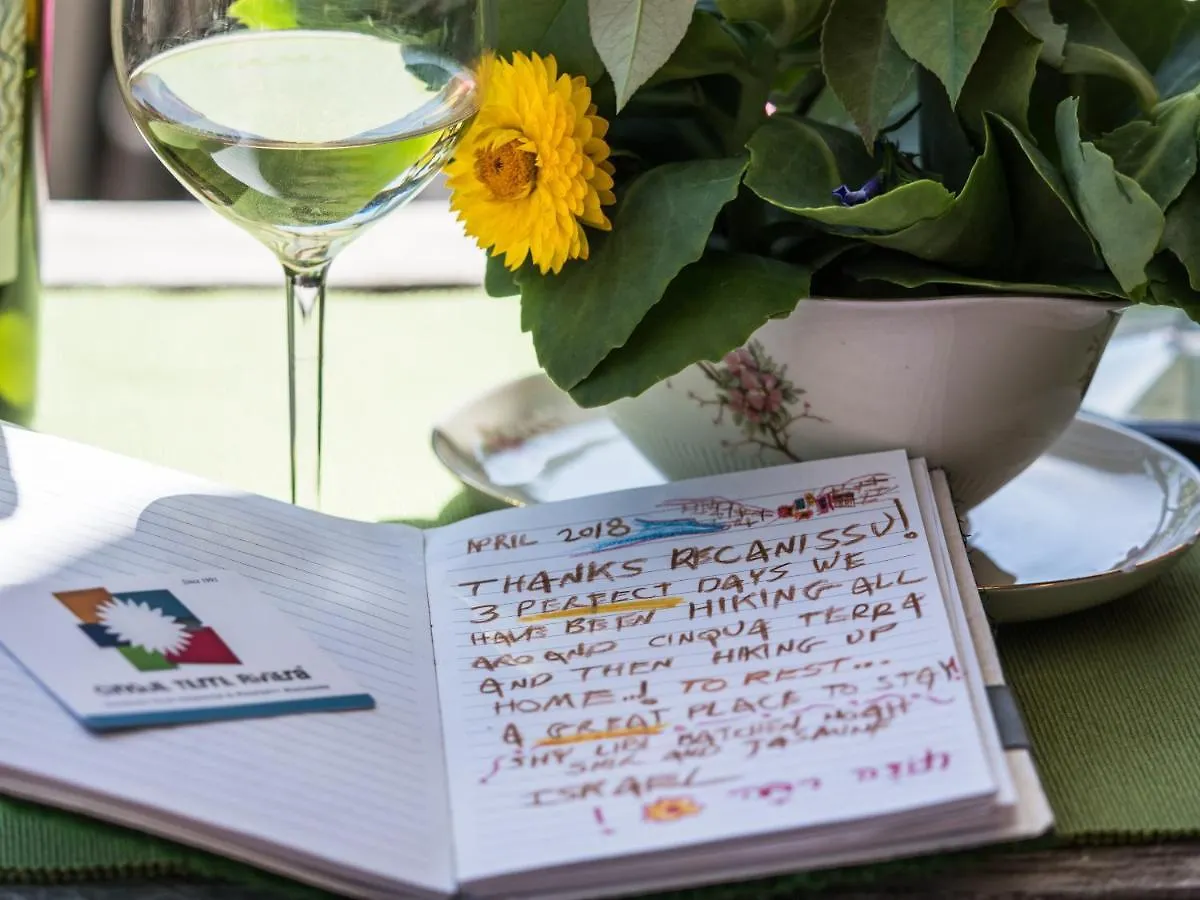 Since 1991
CINQUE TERRE RIVIERA
APRIL 2018
THANKS RECANISSU!
3 PERFECT DAYS WE
HAVE BEEN HIKING ALL
AROAND CINQUA TERRA
AND THEN HIKING UP
HOME..! TO REST...
A GREAT PLACE TO STAY!
SHY LIBI
AND
ISRAEL
!